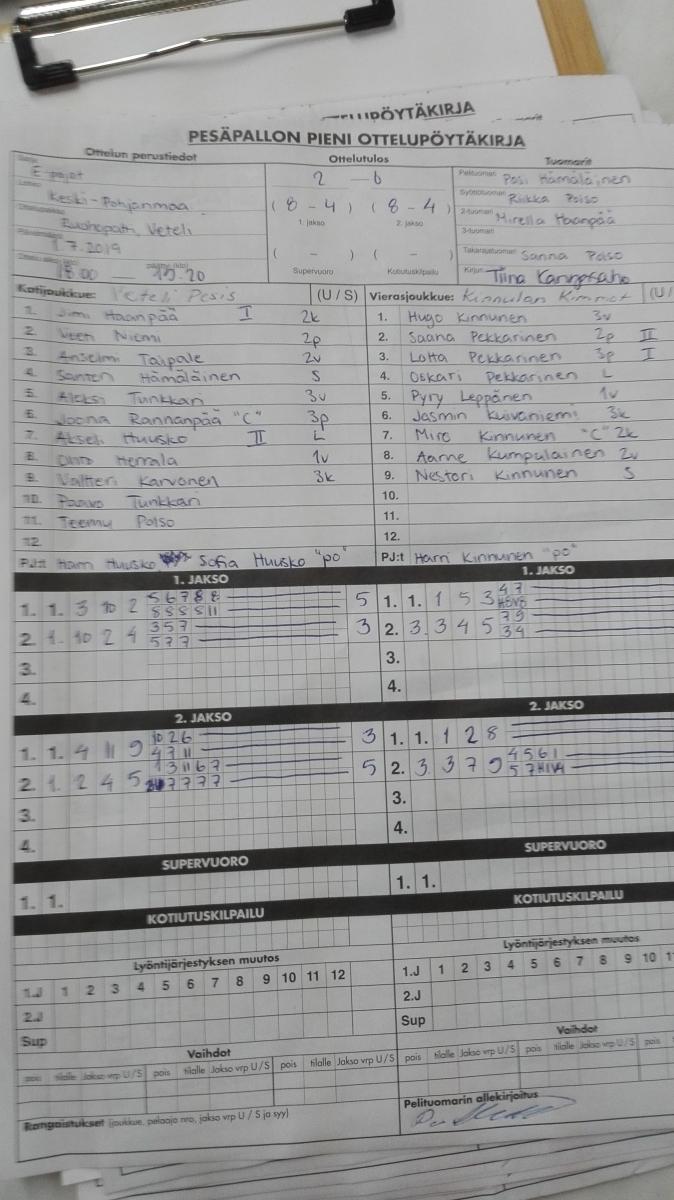 PÖYTÄKIRJA
PESÄPALLON PIENI OTTELUPÖYTÄKIRJA
Ottelun perustiedot
E-pojat
Keski-Pohjanmaa
Veteli
7.2019
18.00 — 19.20
Ottelutulos
2 — 0
(8 - 4) (8 - 4)
1. jakso 2. jakso
( - ) ( - )
Supervuoro Kotiutuskilpailu
Tuomarit
Pelituomari Pasi Hämäläinen
Syöttötuomari Riikka Polso
2-tuomari Mirella Haanpää
3-tuomari
Takarajatuomari Sanna Polso
Kirjuri Tiina
Kotijoukkue: Veteli Pesis (U / S)
1. Jimi Haanpää I 2k
2. Veeti Niemi 2p
3. Anselmi Taipale 2v
4. Santeri Hämäläinen S
5. Aleksi Tunkkari 3v
6. Joona Rannanpää "C" 3p
7. Akseli Huusko II L
8. Herrala 1v
9. Valtteri Karvonen 3k
10. Paavo Tunkkari
11. Teemu Polso
12.
PJ:t Harri Huusko Sofia Huusko "po"
Vierasjoukkue: Kinnulan (U /
1. Hugo Kinnunen 3v
2. Saana Pekkarinen 2p II
3. Lotta Pekkarinen 3p I
4. Oskari Pekkarinen L
5. Pyry Leppänen 1v
6. Jasmin Kuivaniemi 3k
7. Miro Kinnunen "C" 2k
8. Aarne Kumpulainen 2v
9. Nestori Kinnunen S
10.
11.
12.
PJ:t Harri Kinnunen "po"
1. JAKSO
1. 1. 3 10 2 5 6 7 8 8 5
8 8 8 8 11
2. 1. 10 2 4 3 5 7 3
5 7 7
3.
4.
1. JAKSO
1. 1. 1 5 3 4 7
2. 3. 3 4 5 7 9
3 4
3.
4.
2. JAKSO
1. 1. 4 11 9 10 2 6 3
4 7 11
2. 1. 2 4 5 1 3 11 6 7 5
7 7 7 7
3.
4.
2. JAKSO
1. 1. 1 2 8
2. 3. 3 7 9 4 5 6 1
5 7
3.
4.
SUPERVUORO
1. 1.
SUPERVUORO
1. 1.
KOTIUTUSKILPAILU
KOTIUTUSKILPAILU
Lyöntijärjestyksen muutos
1.J 1 2 3 4 5 6 7 8 9 10 11 12
2.J
Sup
Lyöntijärjestyksen muutos
1.J 1 2 3 4 5 6 7 8 9 10 1
2.J
Sup
Vaihdot
pois tilalle Jakso vrp U/S pois tilalle Jakso vrp U/S pois tilalle Jakso vrp U/S
Vaihdot
pois tilalle Jakso vrp U/S pois tilalle Jakso vrp U/S pois
Rangaistukset (joukkue, pelaaja nro, jakso vrp U / S ja syy)
Pelituomarin allekirjoitus